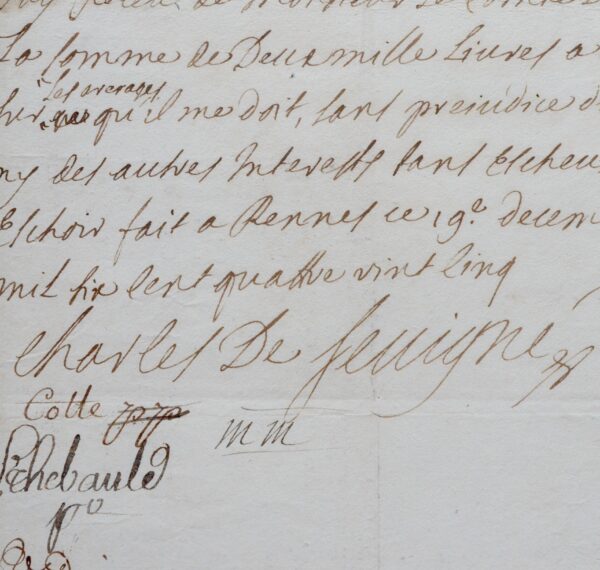 de Monsieur Le Comte
La somme de Deux mille Livres a
les arerages
sur qu'il me doit, sans prejudice d
ny des autres Interests tant Escheu
Eschoir fait a Rennes ce 19e decem
mil six cent quattre vint cinq
Charles De Sevigné
Cotte
mm